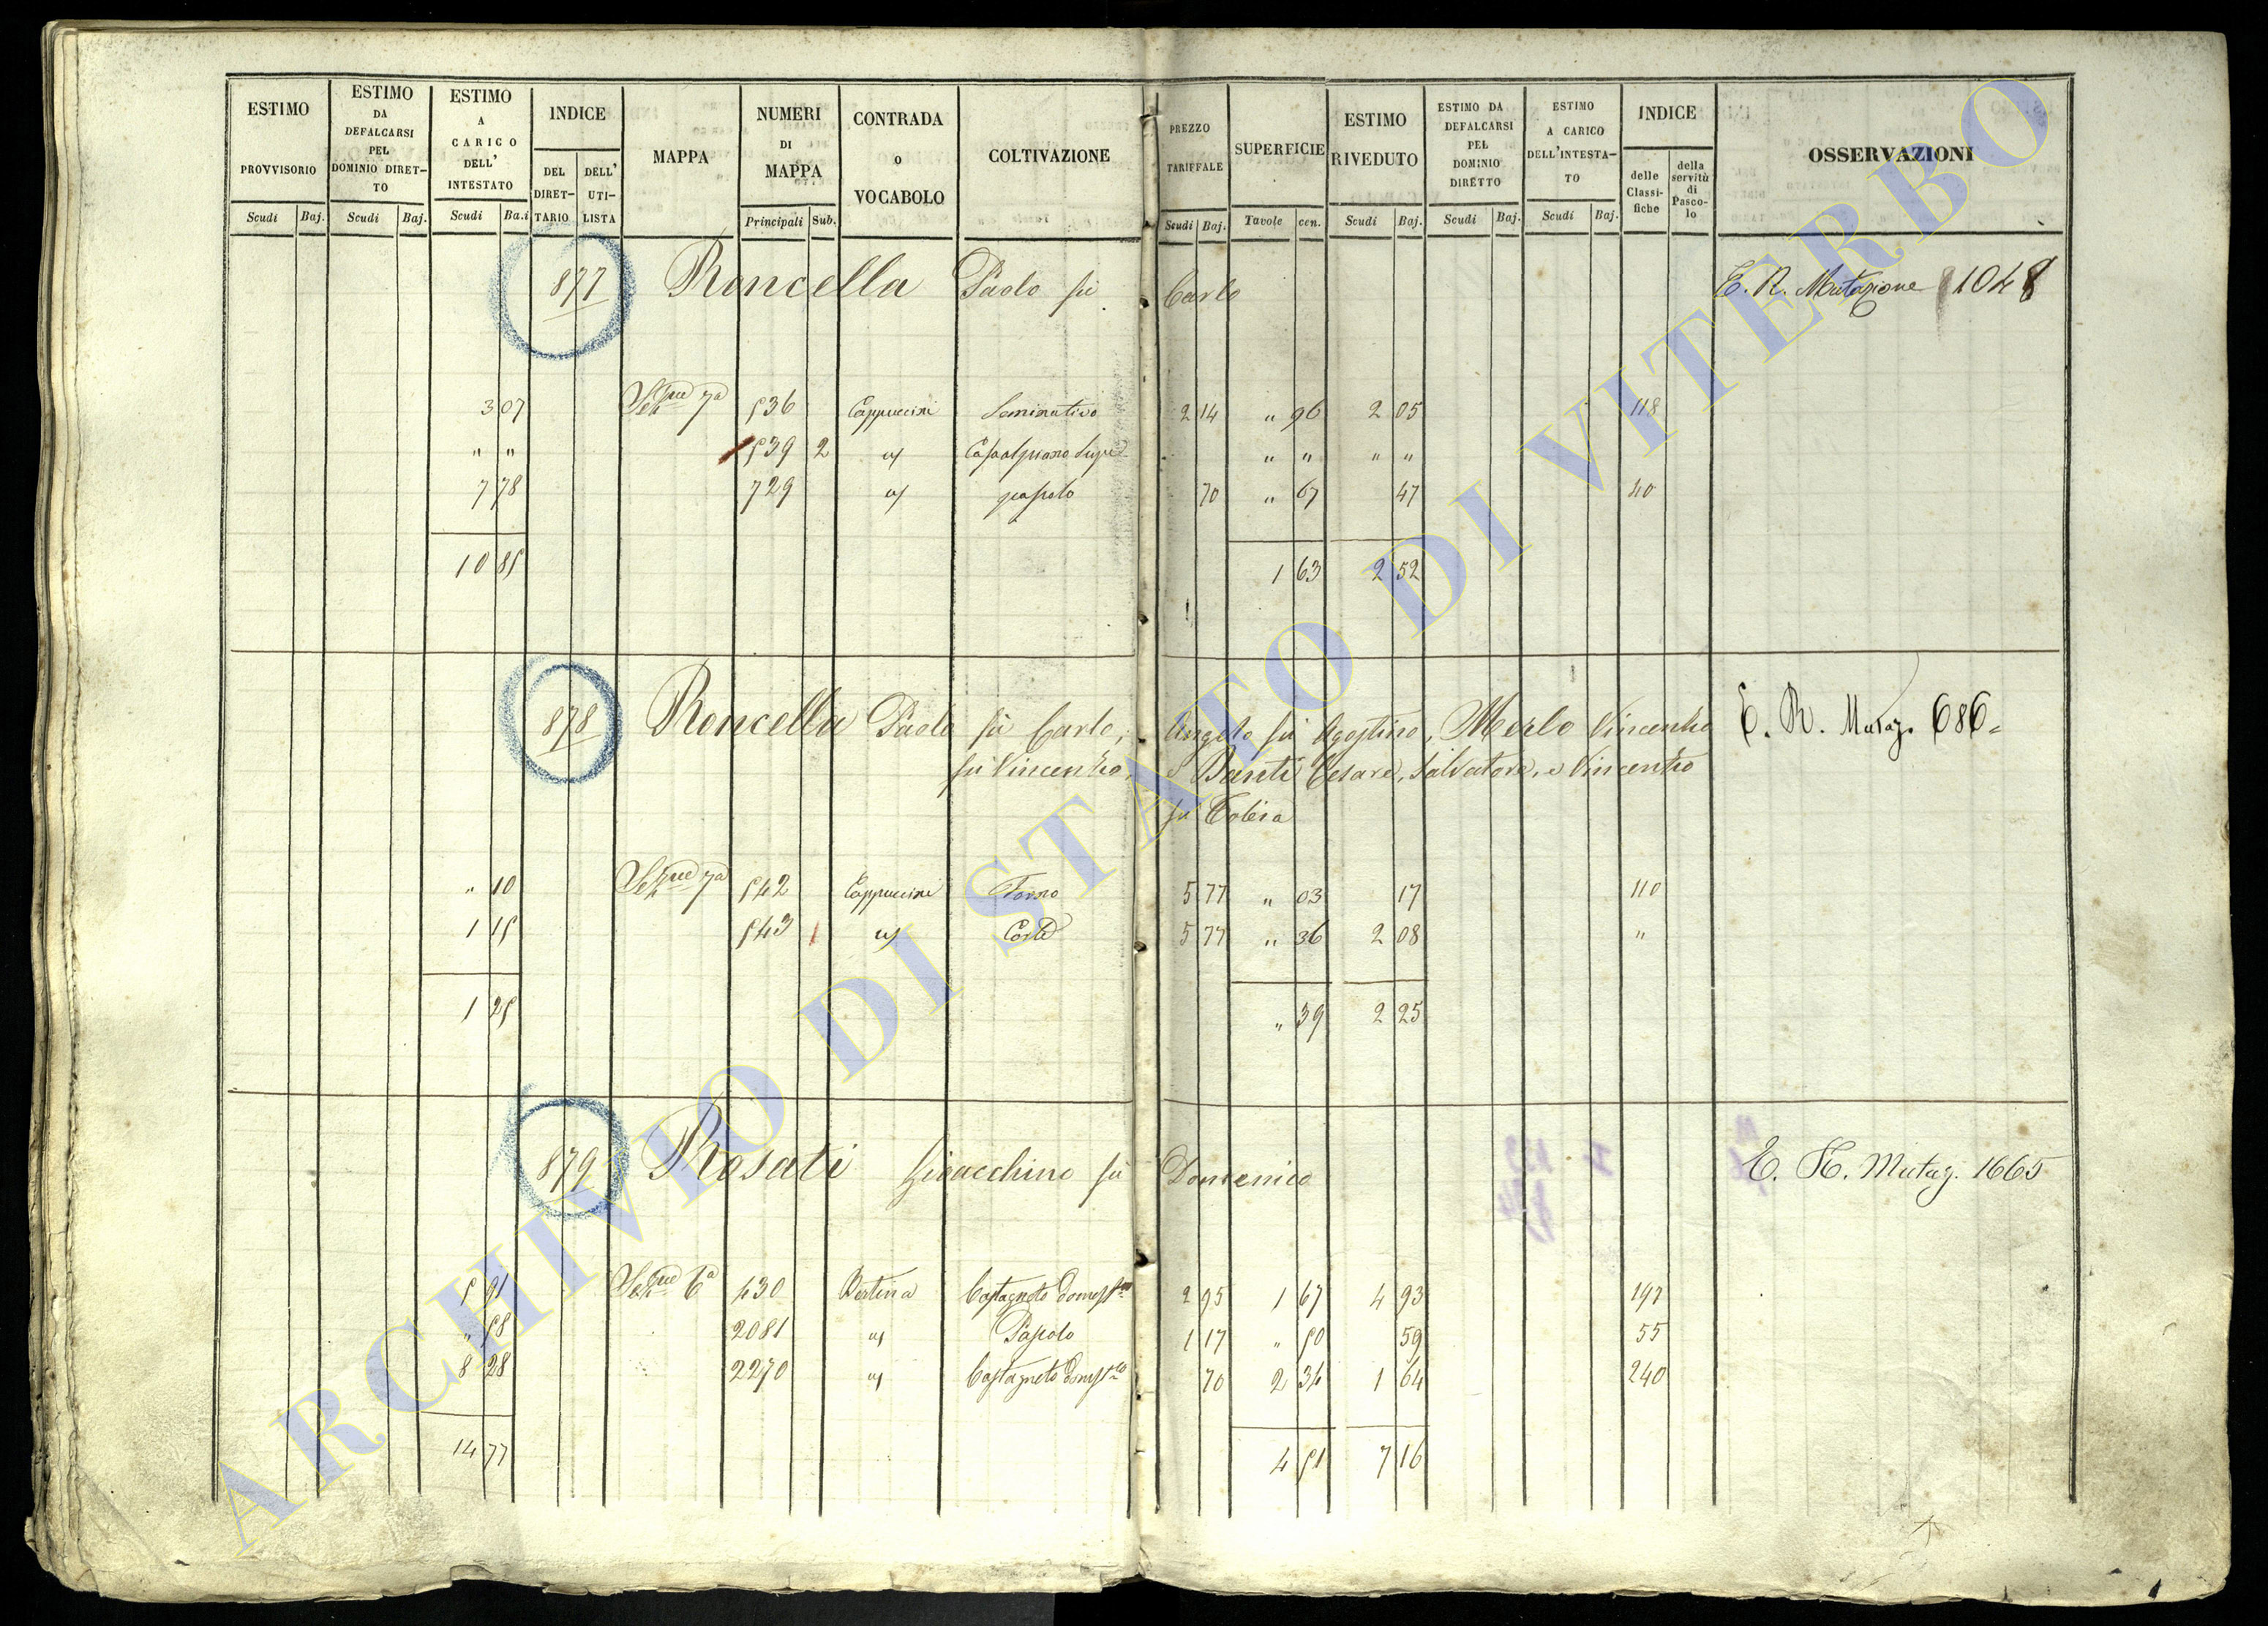 ESTIMO PROVVISORIO | ESTIMO DA DEFALCARSI PEL DOMINIO DIRETTO | ESTIMO A CARICO DELL' INTESTATO | INDICE | MAPPA | NUMERI DI MAPPA | CONTRADA o VOCABOLO | COLTIVAZIONE | PREZZO TARIFFALE | SUPERFICIE | ESTIMO RIVEDUTO | ESTIMO DA DEFALCARSI PEL DOMINIO DIRETTO | ESTIMO A CARICO DELL'INTESTATO | INDICE | OSSERVAZIONI
DEL DIRETTARIO | DELL' UTILISTA | delle Classifiche | della servitù di Pascolo
Scudi | Baj. | Scudi | Baj. | Scudi | Ba.i | Principali | Sub. | Scudi | Baj. | Tavole | cen. | Scudi | Baj. | Scudi | Baj. | Scudi | Baj.
877 Roncella Paolo fu Carlo E. R. Mutazione 1048
3 07 7a 536 Cappuccini Seminativo 2 14 " 96 2 05 118
" " 539 2 " " " "
7 78 729 pascolo 70 " 67 47 40
10 85 1 63 2 52
878 Roncella Paolo fu Carlo, Angelo fu Agostino, Merlo Vincenzo E. R. Mutaz. 686
fu Vincenzo, e Banti Cesare, Salvatore, e Vincenzo
fu Tobia
" 10 7a 542 Cappuccini Forno 5 77 " 03 17 110
1 15 543 1 Corte 5 77 " 36 2 08 "
1 25 " 39 2 25
879 Rosati Gioacchino fu Domenico Mutaz. 1665
5 91 6a 430 Bertina Castagneto 2 95 1 67 4 93 197
" 58 2081 Pascolo 1 17 " 50 59 55
8 28 2270 Castagneto 70 2 34 1 64 240
14 77 4 51 7 16
ARCHIVIO DI STATO DI VITERBO